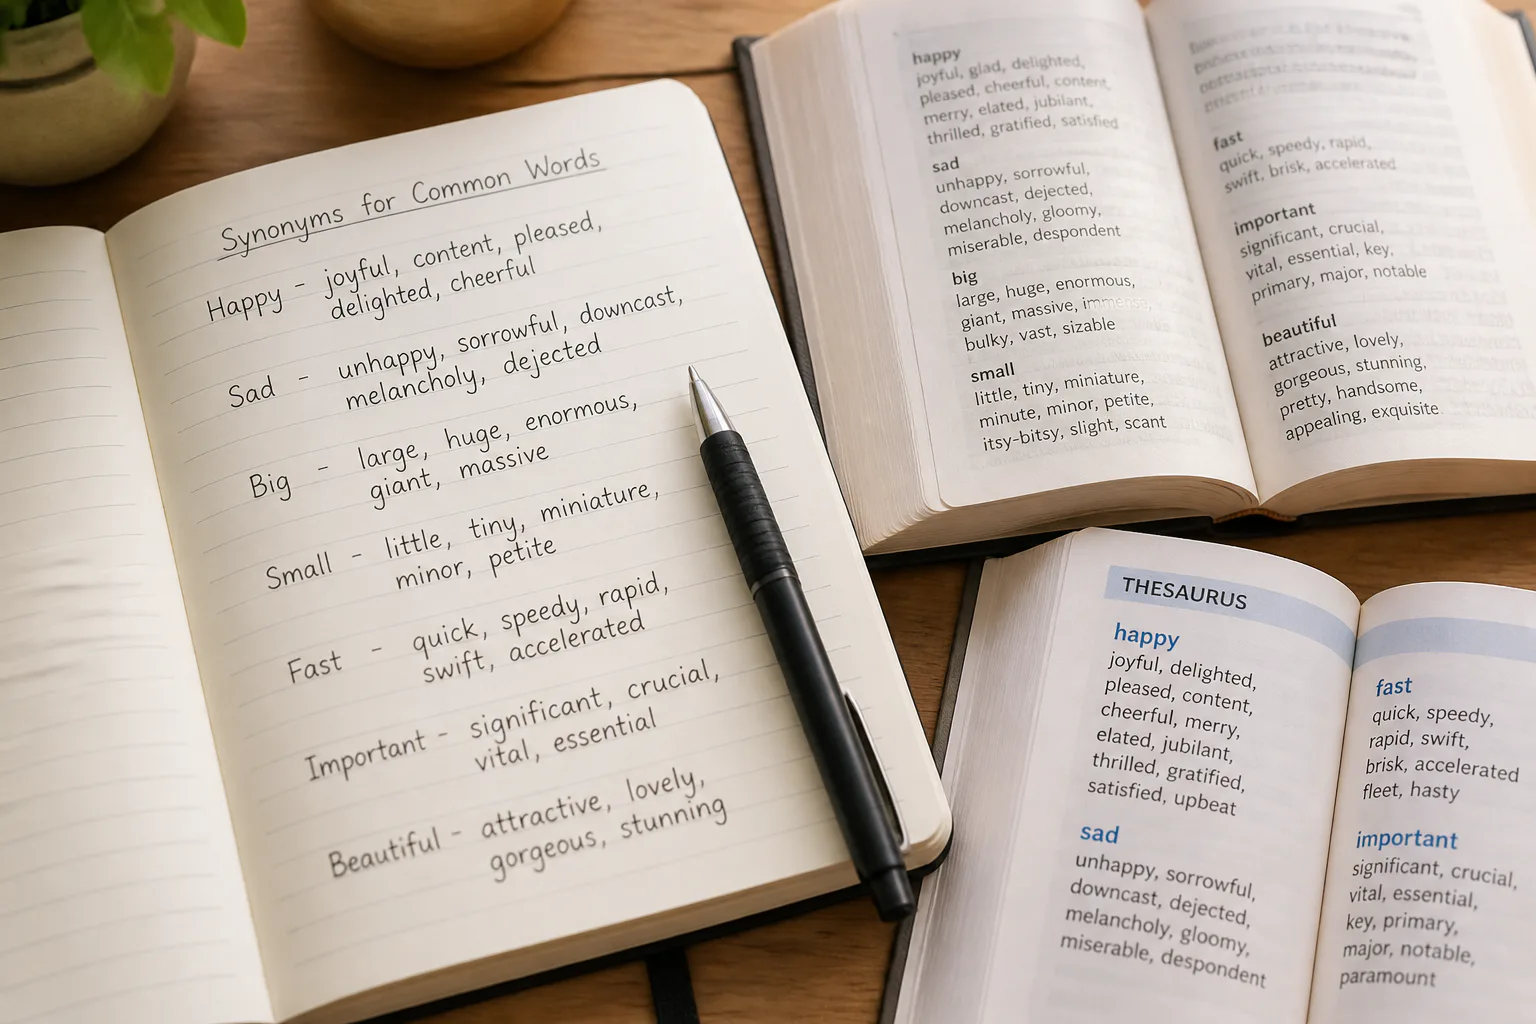 Synonyms for Common Words
Happy - joyful, content, pleased,
delighted, cheerful
Sad - unhappy, sorrowful, downcast,
melancholy, dejected
Big - large, huge, enormous,
giant, massive
Small - little, tiny, miniature,
minor, petite
Fast - quick, speedy, rapid,
swift, accelerated
Important - significant, crucial,
vital, essential
Beautiful - attractive, lovely,
gorgeous, stunning
happy
joyful, glad, delighted,
pleased, cheerful, content,
merry, elated, jubilant,
thrilled, gratified, satisfied
sad
unhappy, sorrowful,
downcast, dejected,
melancholy, gloomy,
miserable, despondent
big
large, huge, enormous,
giant, massive, immense,
bulky, vast, sizable
small
little, tiny, miniature,
minute, minor, petite,
itsy-bitsy, slight, scant
fast
quick, speedy, rapid,
swift, brisk, accelerated
important
significant, crucial,
vital, essential, key,
primary, major, notable
beautiful
attractive, lovely,
gorgeous, stunning,
pretty, handsome,
appealing, exquisite
THESAURUS
happy
joyful, delighted,
pleased, content,
cheerful, merry,
elated, jubilant,
thrilled, gratified,
satisfied, upbeat
sad
unhappy, sorrowful,
downcast, dejected,
melancholy, gloomy,
miserable, despondent
fast
quick, speedy,
rapid, swift,
brisk, accelerated
fleet, hasty
important
significant, crucial,
vital, essential,
key, primary,
major, notable,
paramount